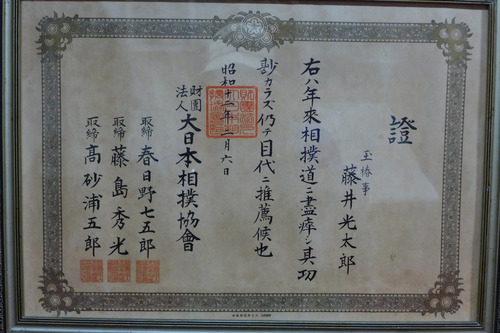 證
玉椿事
藤井光太郎
右ハ年来相撲道ニ盡瘁シ其功
尠カラズ仍テ目代ニ推薦候也
昭和十二年二月六日
財團法人大日本相撲協會
取締 春日野七五郎
取締 藤島秀光
取締 高砂浦五郎